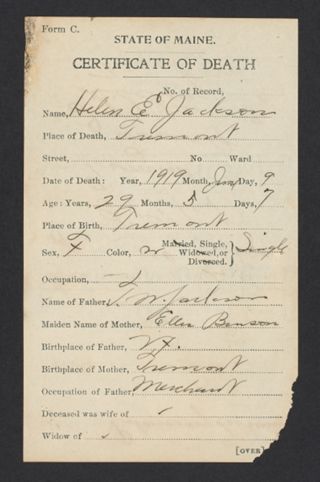 Form C.
STATE OF MAINE.
CERTIFICATE OF DEATH
No. of Record,
Name, Helen E Jackson
Place of Death, Tremont
Street, No Ward
Date of Death: Year, 1919 Month, Jan Day, 9
Age: Years, 29 Months, 5 Days, 7
Place of Birth, Tremont
Sex, F Color, w Married, Single, Widowed, or Divorced. } Single
Occupation,
Name of Father, J. W. Jackson
Maiden Name of Mother, Ellen Benson
Birthplace of Father, Vt.
Birthplace of Mother, Tremont
Occupation of Father, Merchant
Deceased was wife of
Widow of
[OVER]